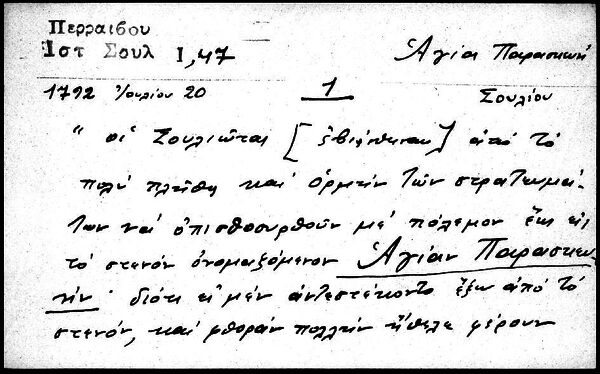 Περραιβου
Ἱστ Σουλ Ι, 47
Ἁγία Παρασκευή
1792 Ἰουλίου 20
1
Σουλίου
" οἱ Σουλιῶται [ἐβιάσθησαν] ἀπό τό
πολύ πλῆθος καί ὁρμήν τῶν στρατευμά-
των νά ὀπισθοσυρθοῦν μέ πόλεμον ἕως εἰς
τό στενόν ὀνομαζόμενον Ἁγίαν Παρασκευ-
ήν· διότι εἰ μέν ἀντεστέκοντο ἔξω ἀπό τό
στενόν, καί φθοράν πολλήν ἤθελε φέρουν